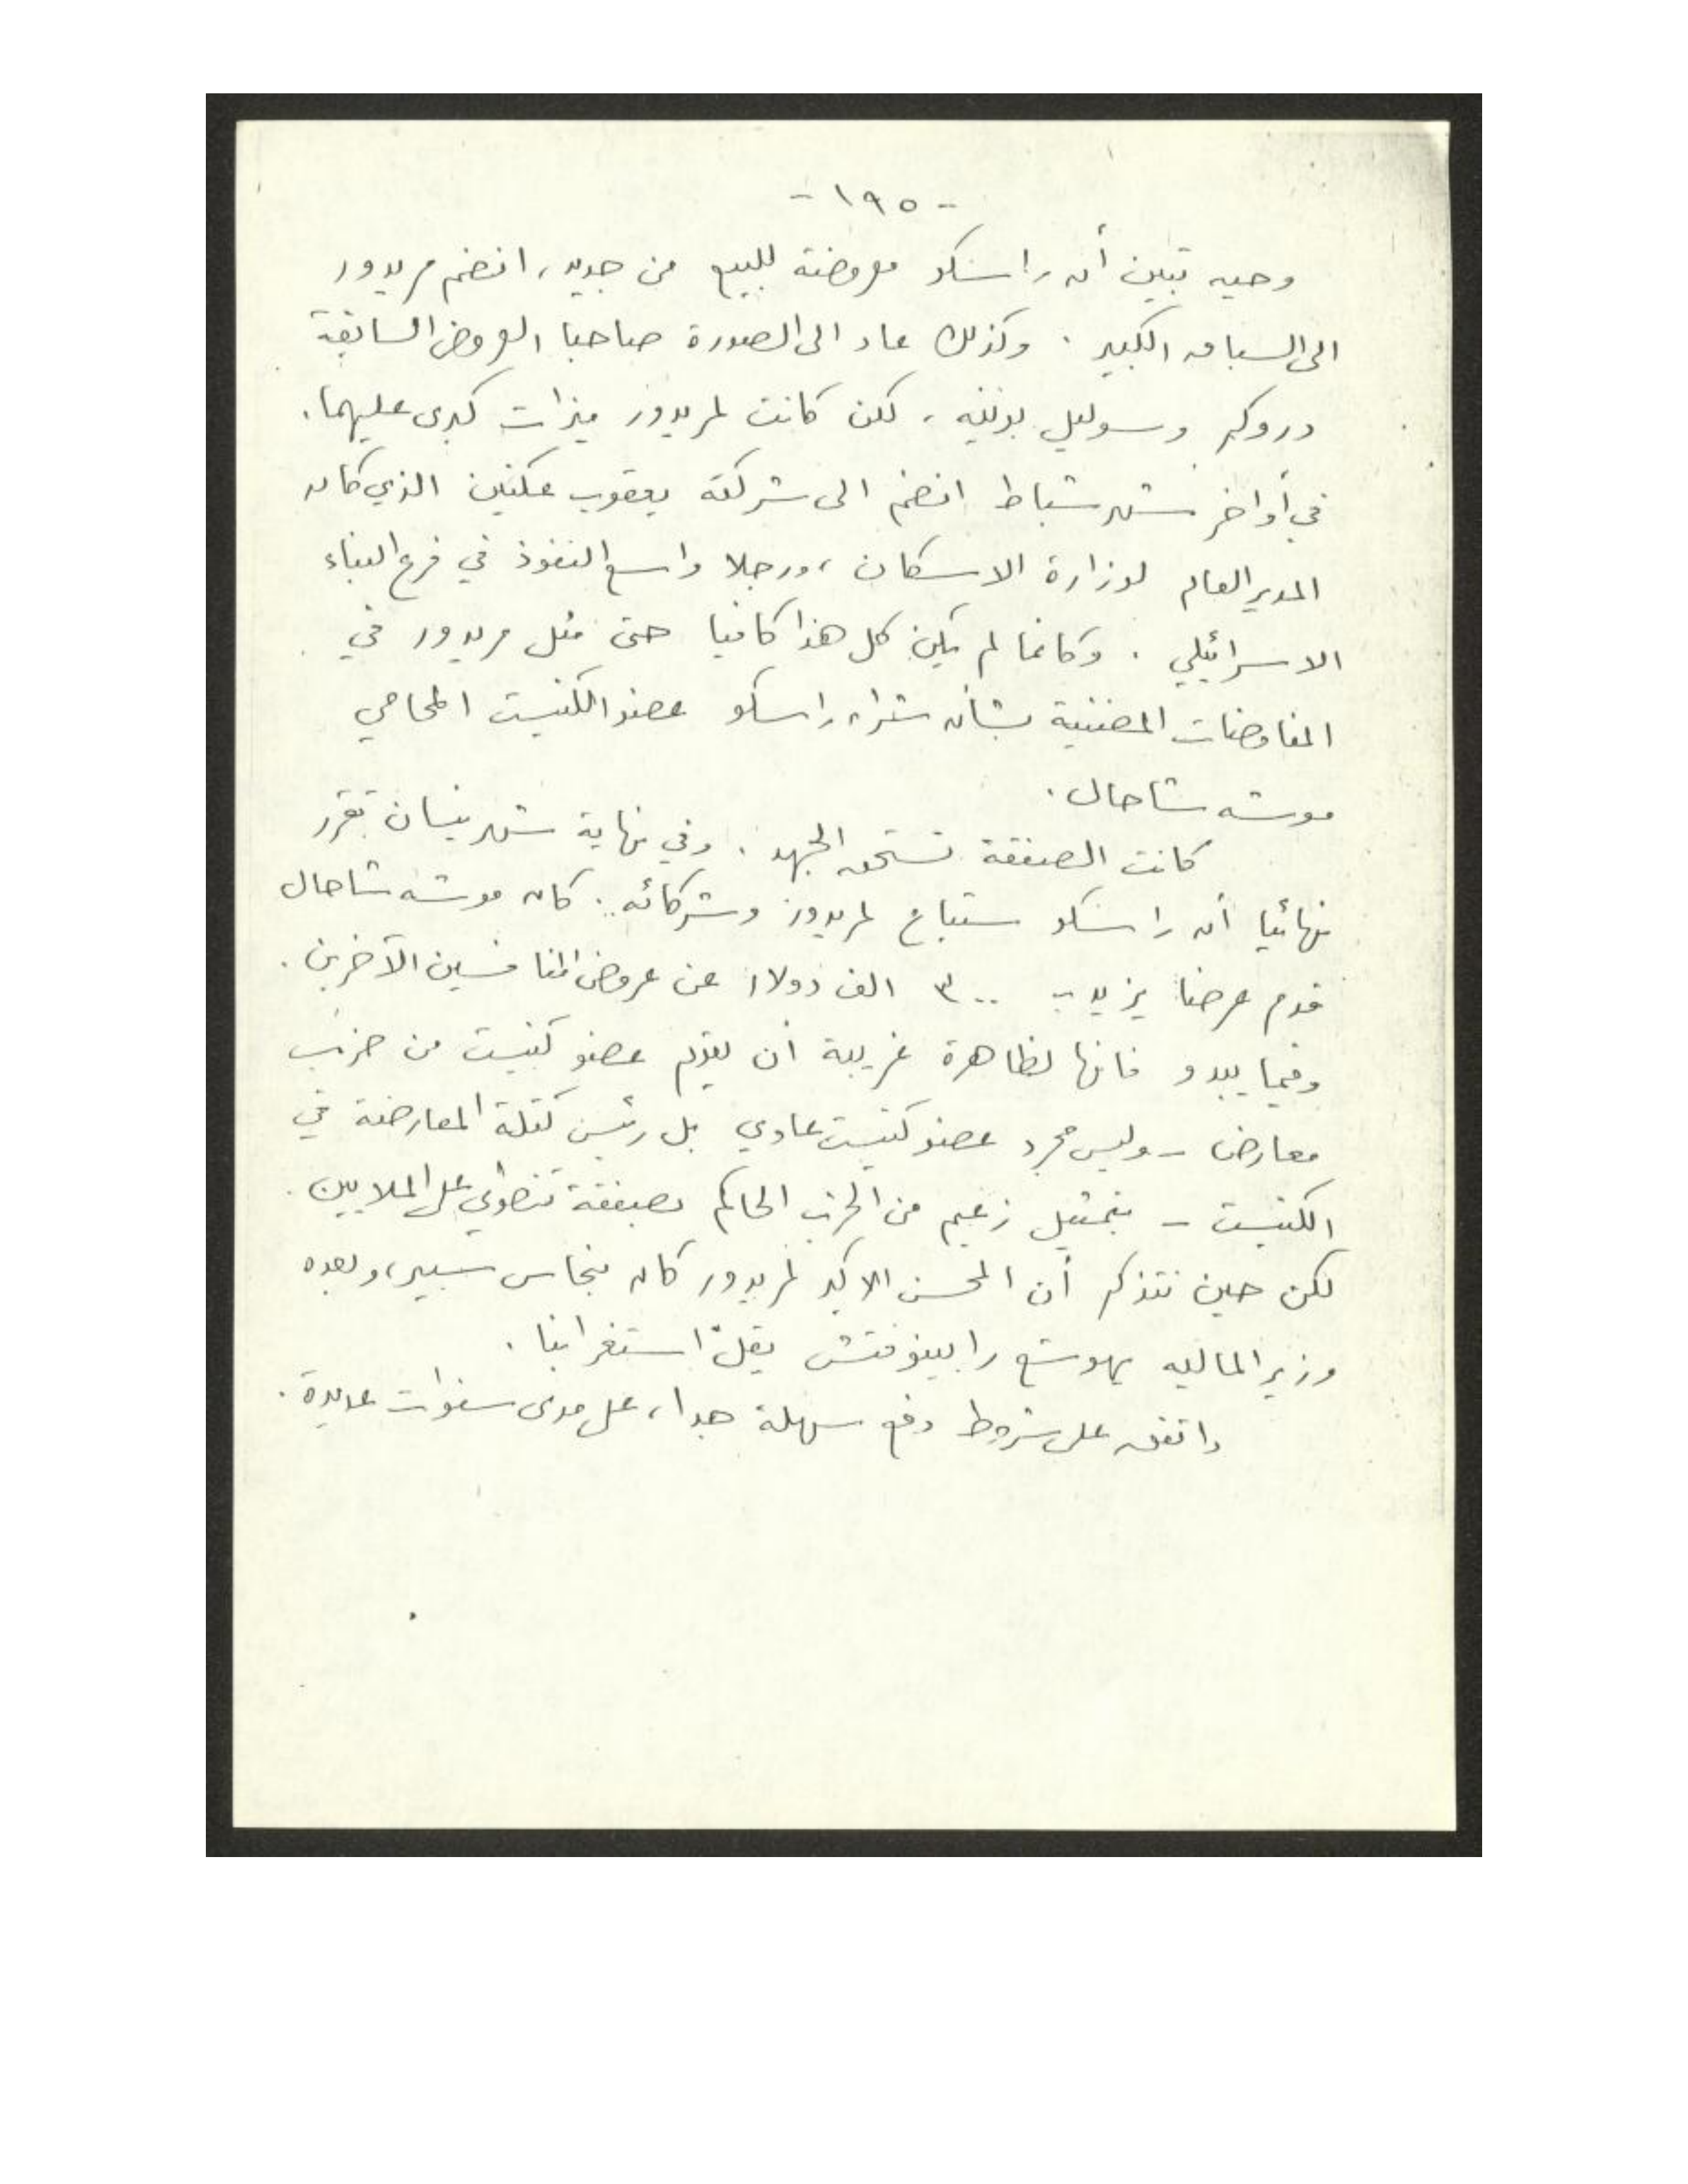 - ١٩٥ -
وحين تبين أن راسكو معروضة للبيع من جديد، انضم مريدور
الى السباق الكبير. وكذلك عاد الى الصورة صاحبا العروض السابقة
دروكر وسوليل بونيه، لكن كانت لمريدور ميزات كبرى عليهما.
في أواخر شهر شباط انضم الى شركته يعقوب عكنين الذي كان
المدير العام لوزارة الاسكان، ورجلا واسع النفوذ في فرع البناء
الاسرائيلي. وكانما لم يكن كل هذا كافيا حتى مثل مريدور في
المفاوضات المضنية بشأن شراء راسكو عضو الكنيست المحامي
موشه شاحال.
كانت الصفقة تستحق الجهد. وفي نهاية شهر نيسان تقرر
نهائيا أن راسكو ستباع لمريدور وشركائه. كان موشه شاحال
قدم عرضا يزيد بـ ٣٠٠ الف دولار عن عروض المنافسين الآخرين.
وفيما يبدو فانها لظاهرة غريبة أن يقوم عضو كنيست من حزب
معارض - وليس مجرد عضو كنيست عادي بل رئيس كتلة المعارضة في
الكنيست - بتمثيل زعيم من الحزب الحاكم بصفقة تنطوي على الملايين.
لكن حين نتذكر أن المحسن الاكبر لمريدور كان بنحاس سبير، وبعده
وزير الماليه يهوشع رابينوفتش يقلّ استغرابنا.
واتفق على شروط دفع سهلة جدا، على مدى سنوات عديدة.